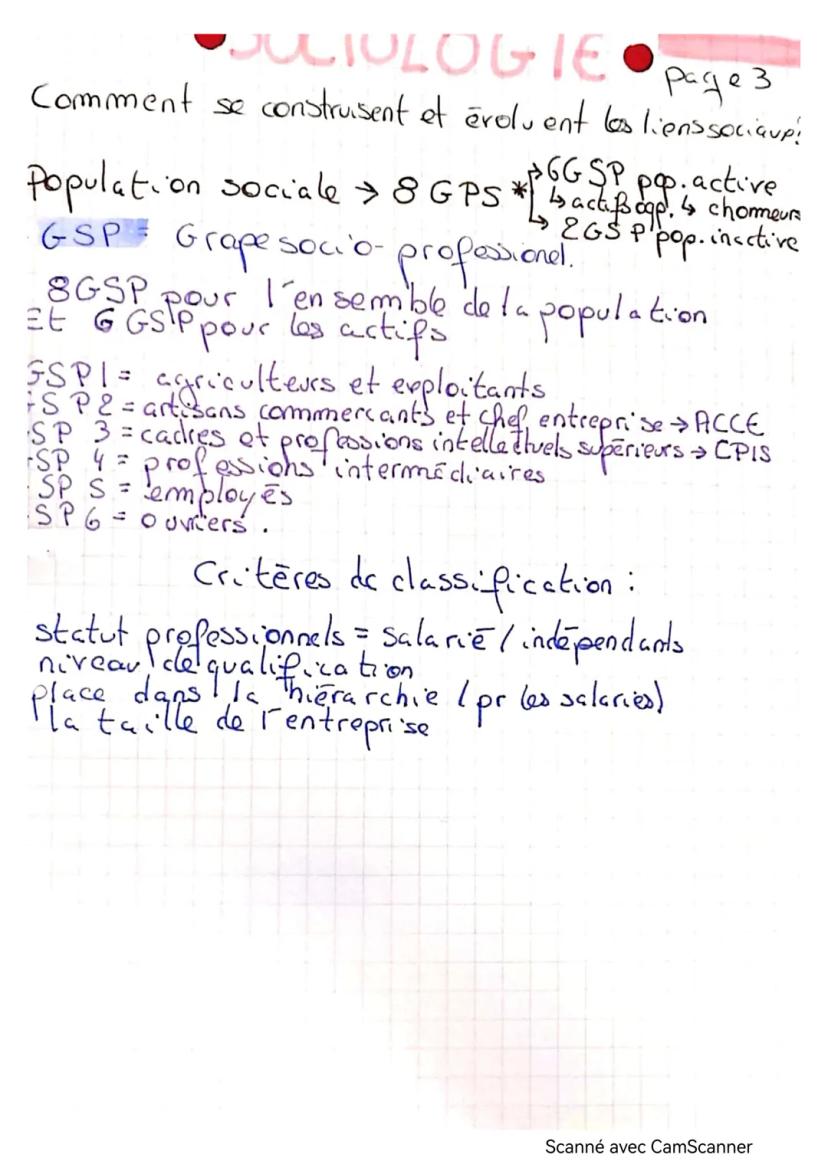 SOCIOLOGIE
page 3
Comment se construisent et évoluent les liens sociaux?
Population sociale → 8 GPS *
→ 6 GSP pop. active
↳ actifs ↳ chomeurs
↳ 2GSP pop. inactive
GSP = Grape socio-professionel.
8GSP pour l'ensemble de la population
Et 6 GSP pour les actifs
GSP1 = agriculteurs et exploitants
SP2 = artisans commercants et chef entreprise → ACCE
SP 3 = cadres et professions intellectuels supérieurs → CPIS
SP 4 = professions intermédiaires
SP 5 = employés
SP6 = ouvriers.
Critères de classification :
statut professionnels = salarié / indépendants
niveau de qualification
place dans la hiérarchie (pr les salaries)
la taille de l'entreprise
Scanné avec CamScanner